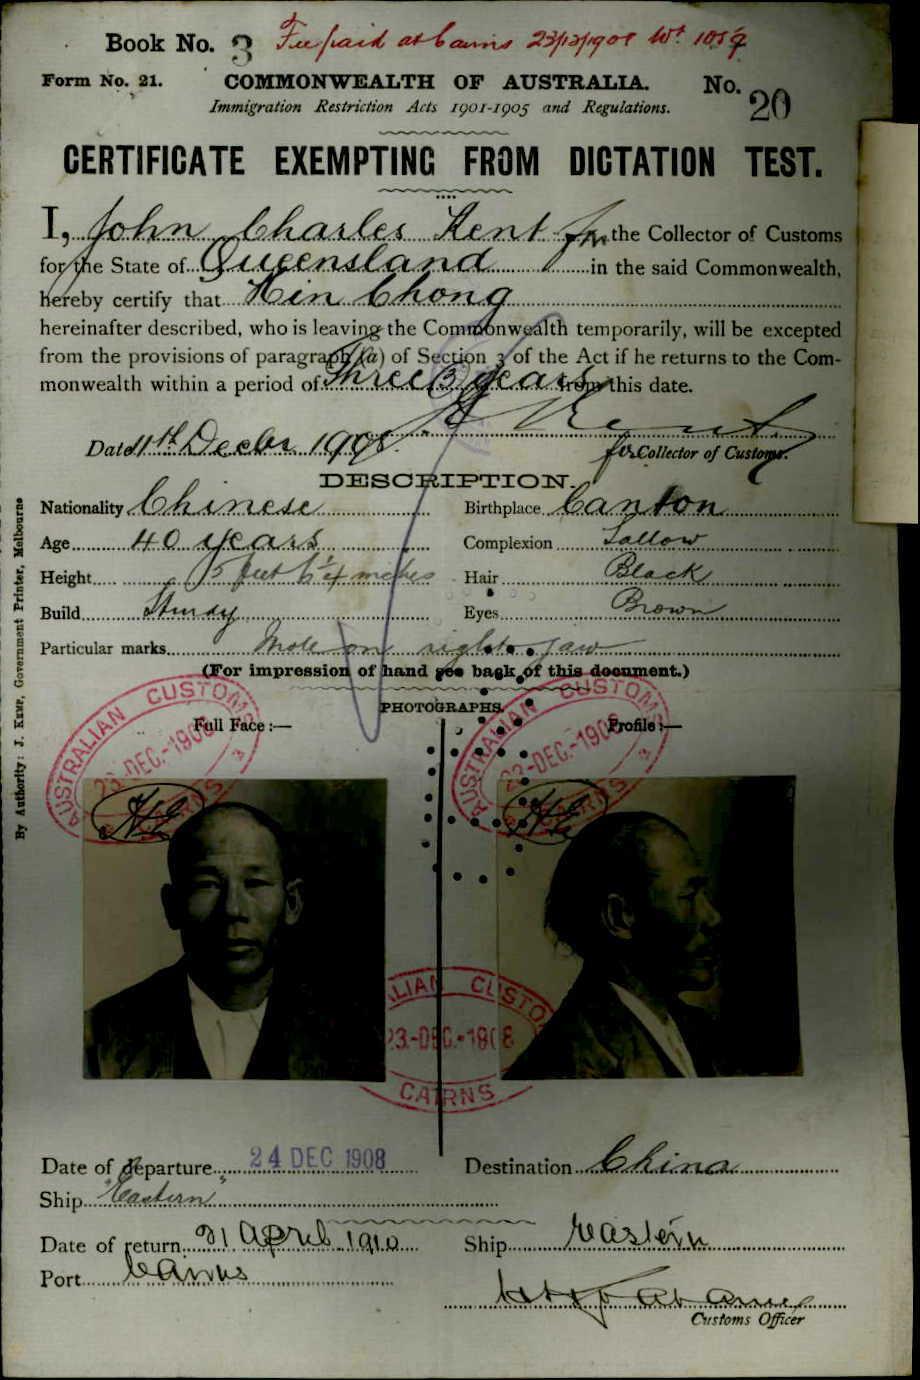 Book No. 3 Fee paid at Cairns 23/12/1908
Form No. 21. COMMONWEALTH OF AUSTRALIA. No. 20
Immigration Restriction Acts 1901-1905 and Regulations.
CERTIFICATE EXEMPTING FROM DICTATION TEST.
I, John Charles Kent for the Collector of Customs
for the State of Queensland in the said Commonwealth,
hereby certify that Hin Chong
hereinafter described, who is leaving the Commonwealth temporarily, will be excepted
from the provisions of paragraph (a) of Section 3 of the Act if he returns to the Com-
monwealth within a period of Three (3) years from this date.
Date 11th Decbr 1908.
for Collector of Customs.
DESCRIPTION.
Nationality Chinese Birthplace Canton
Age 40 years Complexion Sallow
Height 5 feet inches Hair Black
Build Sturdy Eyes Brown
Particular marks Mole on right jaw
(For impression of hand see back of this document.)
PHOTOGRAPHS.
Full Face:— Profile:—
AUSTRALIAN CUSTOMS 23-DEC.-1908 CAIRNS 3
AUSTRALIAN CUSTOMS 23-DEC.-1908 CAIRNS 3
ALIAN CUSTOM
23.-DEC.-1908
CAIRNS
Date of departure 24 DEC 1908 Destination China
Ship "Eastern"
Date of return 21 April 1910 Ship Eastern
Port Cairns
Customs Officer
By Authority: J. Kemp, Government Printer, Melbourne